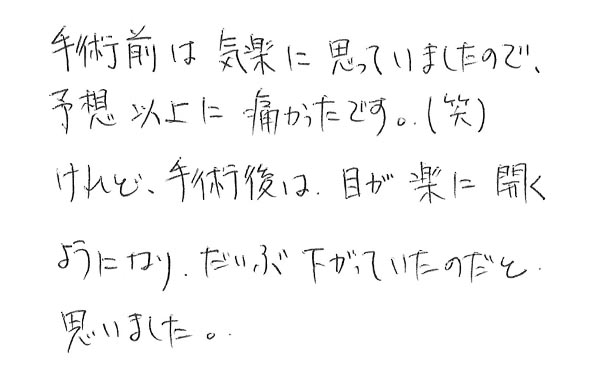 手術前は気楽に思っていましたので、
予想以上に痛かったです。(笑)
けれど、手術後は、目が楽に開く
ようになり、だいぶ下がっていたのだと
思いました。